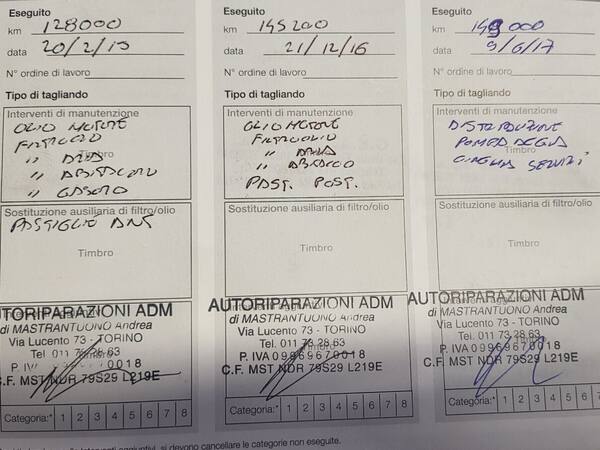 Eseguito
km 128000
data 20/2/15
N° ordine di lavoro
Tipo di tagliando
Interventi di manutenzione
OLIO MOTORE
FILTRO OLIO
" ARIA
" ABITACOLO
" GASOLIO
Timbro
Sostituzione ausiliaria di filtro/olio
PASTIGLIE ANT
Timbro
AUTORIPARAZIONI ADM
di MASTRANTUONO Andrea
Via Lucento 73 - TORINO
Tel. 011 73.28.63
P. IVA 0018
C.F. MST NDR 79S29 L219E
Categoria:* 1 2 3 4 5 6 7 8
Eseguito
km 145200
data 21/12/16
N° ordine di lavoro
Tipo di tagliando
Interventi di manutenzione
OLIO MOTORE
FILTRO OLIO
" ARIA
" ABITACOLO
PAST. POST.
Timbro
Sostituzione ausiliaria di filtro/olio
Timbro
AUTORIPARAZIONI ADM
di MASTRANTUONO Andrea
Via Lucento 73 - TORINO
Tel. 011 73.28.63
P. IVA 09969670018
C.F. MST NDR 79S29 L219E
Categoria:* 1 2 3 4 5 6 7 8
Eseguito
km 149000
data 9/6/17
N° ordine di lavoro
Tipo di tagliando
Interventi di manutenzione
DISTRIBUZIONE
POMPA ACQUA
CINGHIA SERVIZI
Timbro
Sostituzione ausiliaria di filtro/olio
Timbro
AUTORIPARAZIONI ADM
di MASTRANTUONO Andrea
Via Lucento 73 - TORINO
Tel. 011 73.28.63
P. IVA 09969670018
C.F. MST NDR 79S29 L219E
Categoria:* 1 2 3 4 5 6 7 8
interventi aggiuntivi, si devono cancellare le categorie non eseguite.